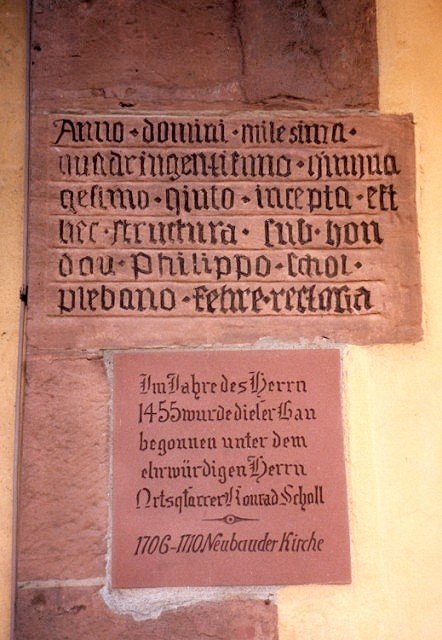 Anno · domini · milesima ·
quadringentienno · qinqua
gesimo · qinto · incepta · est
hec · structura · sub · hon
dou · Philippo · schol ·
plebano ·
Im Jahre des Herrn
1455 wurde dieser Bau
begonnen unter dem
ehrwürdigen Herrn
Ortspfarrer Konrad Scholl
1706-1710 Neubau der Kirche